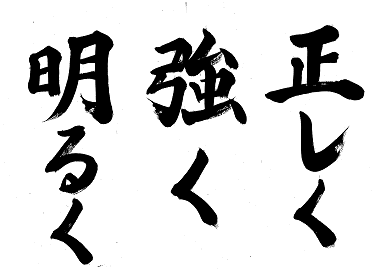 正しく
強く
明るく